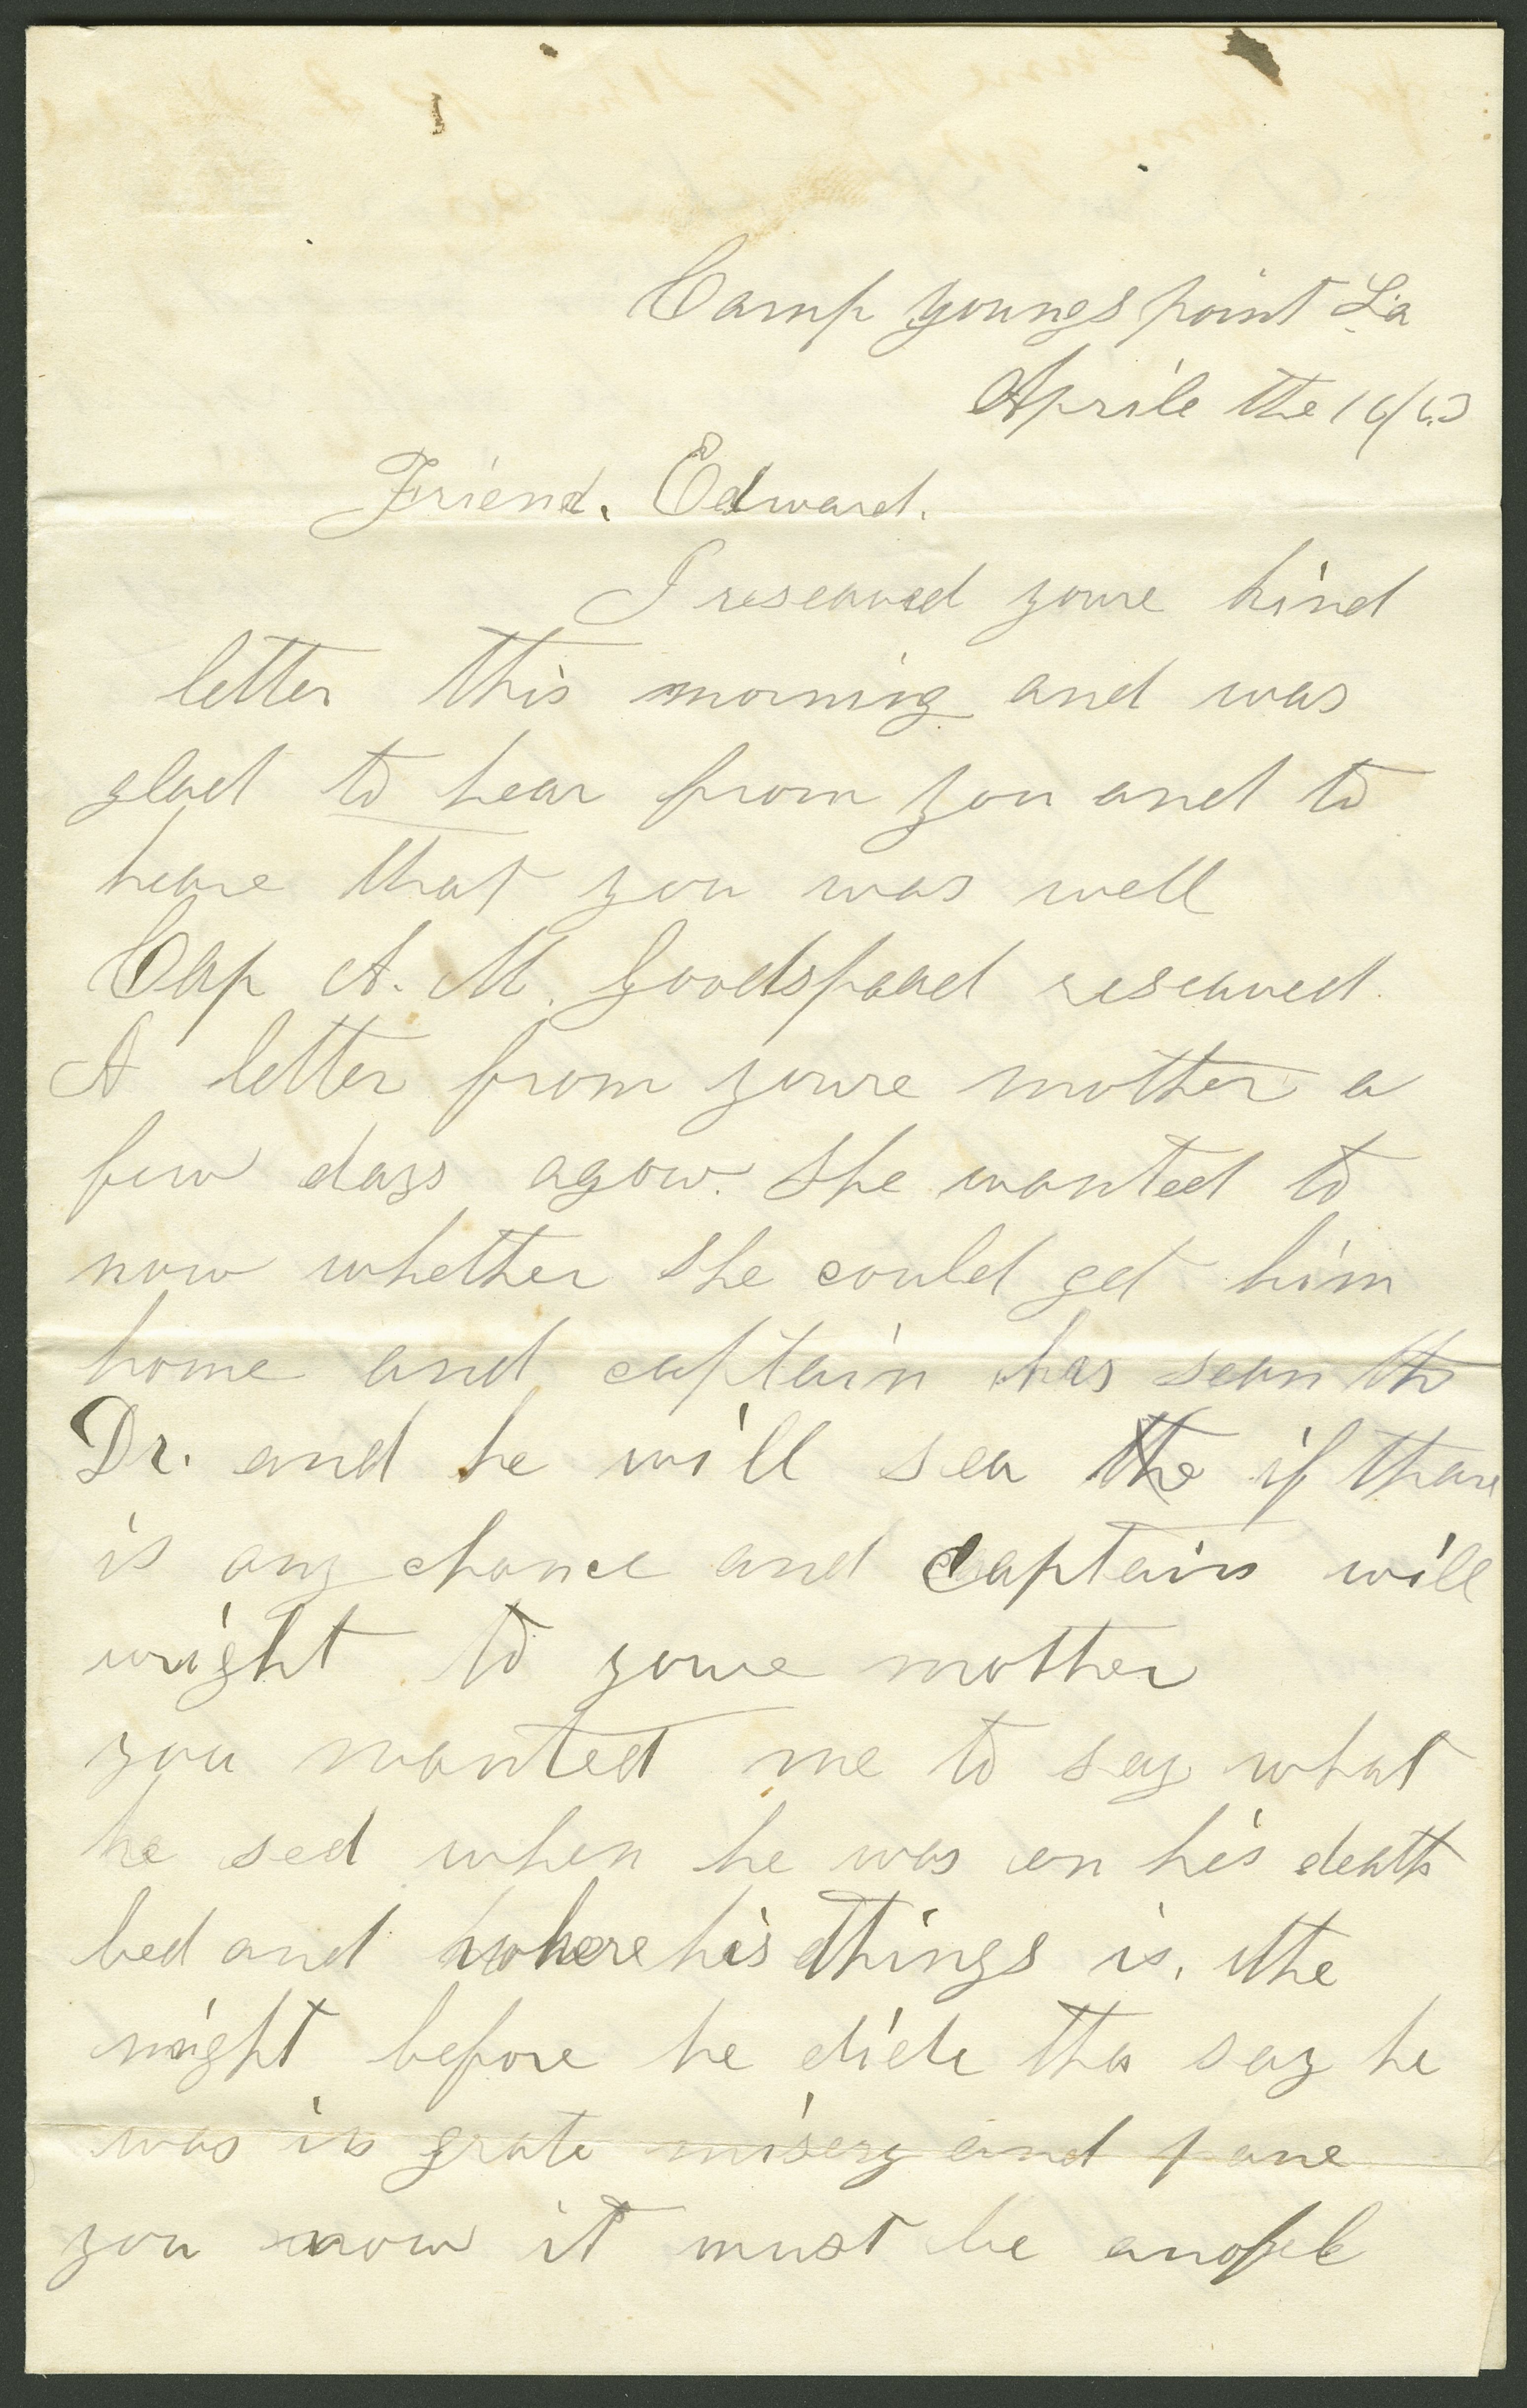 Camp youngs point La
Aprile the 16/63
Friend. Edward.
I reseaved youre kind
letter this morning and was
glad to hear from you and to
heare that you was well
Cap A. M. Goodspead reseaved.
A letter from youre mother a
few days agow. She wanted to
now whether she could get him
home and captain has sean the
Dr. and he will sea the if thare
is any chance and Captain will
wright to youre mother
you wanted me to say what
he sed when he was on his death
bed and where his things is. the
night before he dide tha say he
was in grate misery and pane
you now it must be